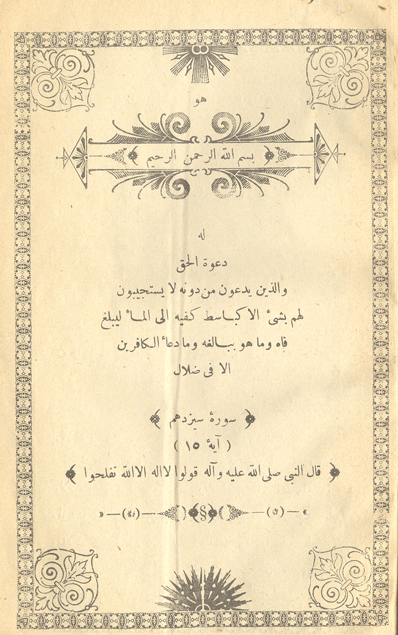 هو
بسم الله الرحمن الرحیم
له
دعوة الحق
والذین یدعون من دونه لا یستجیبون
لهم بشئ الا کباسط کفیه الی المأ لیبلغ
فاه وما هو ببالغه وما دعأ الکافرین
الا فی ضلال
سورهٔ سیزدهم
( آیهٔ ١٥ )
قال النبی صلی الله علیه وآله قولوا لااله الاالله تفلحوا